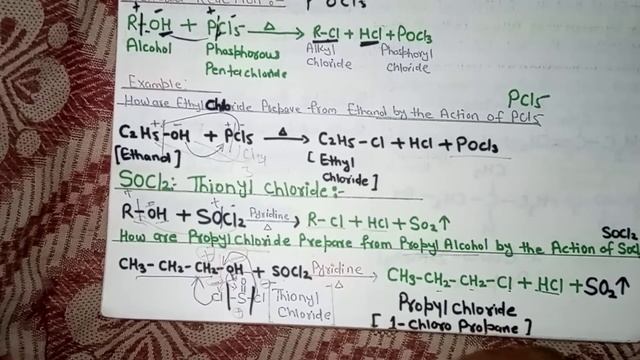 POCl3
R-OH + PCl5 —Δ→ R-Cl + HCl + POCl3
Alcohol Phosphorous Pentachloride Alkyl Chloride Phosphoryl Chloride
Example:
PCl5
How are Ethyl Chloride Prepare from Ethanol by the Action of PCl5
C2H5-OH + PCl5 —Δ→ C2H5-Cl + HCl + POCl3
[Ethanol] [Ethyl Chloride]
SOCl2: Thionyl Chloride:-
R-OH + SOCl2 —Pyridine/Δ→ R-Cl + HCl + SO2↑
SOCl2
How are Propyl Chloride Prepare from Propyl Alcohol by the Action of SOCl
CH3-CH2-CH2-OH + SOCl2 —Pyridine/Δ→ CH3-CH2-CH2-Cl + HCl + SO2↑
Cl-S-Cl Thionyl Chloride
O
Propyl Chloride
[1-Chloro Propane]